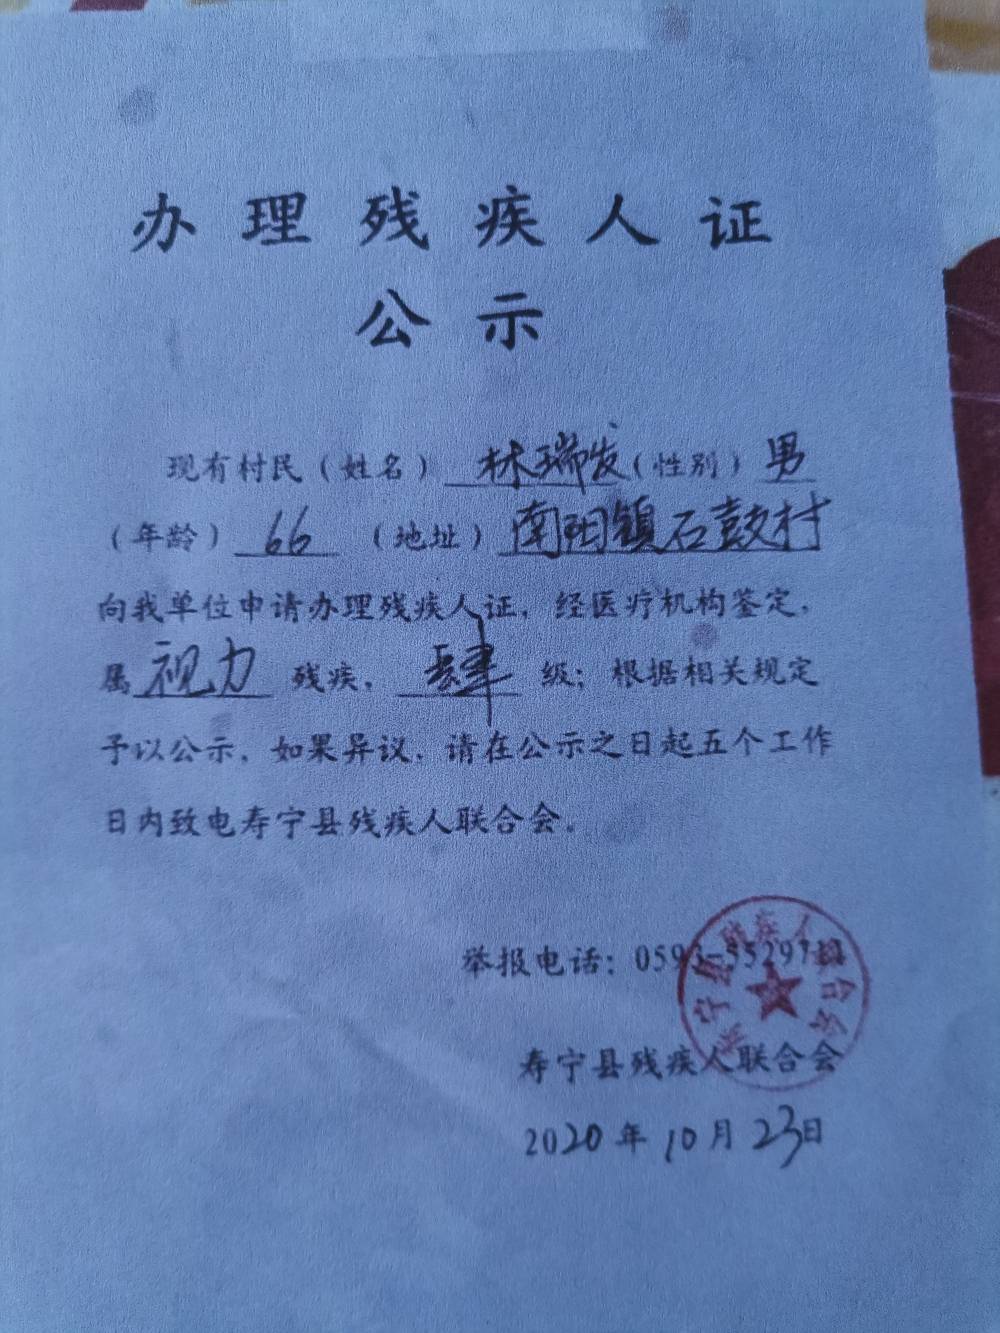 办理残疾人证
公示
现有村民（姓名）林瑞发（性别）男
（年龄）66（地址）南阳镇石鼓村
向我单位申请办理残疾人证，经医疗机构鉴定，
属视力残疾，肆级；根据相关规定
予以公示，如果异议，请在公示之日起五个工作
日内致电寿宁县残疾人联合会。
举报电话：0593-5529711
寿宁县残疾人联合会
寿宁县残疾人联合会
2020年10月23日